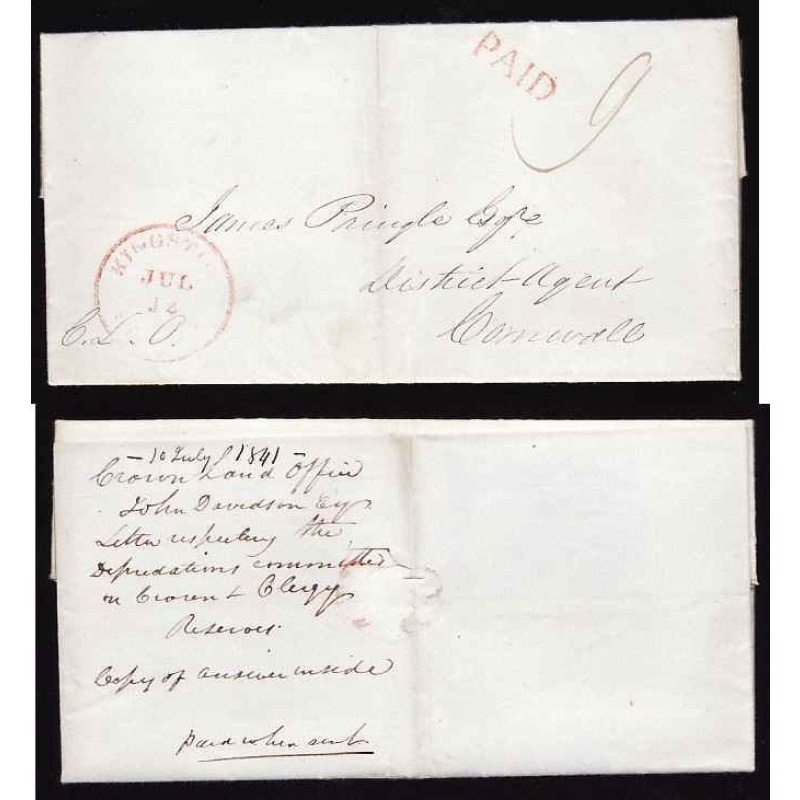 PAID
9
James Pringle Esqre
District Agent
Cornwall
KINGST
JUL
12
C. L. O.
- 10 July 1841 -
Crown Land Office
John Davidson Esq
Letter respecting the
Depredations committed
on Crown & Clergy
Reserves.
Copy of answer inside
paid when sent